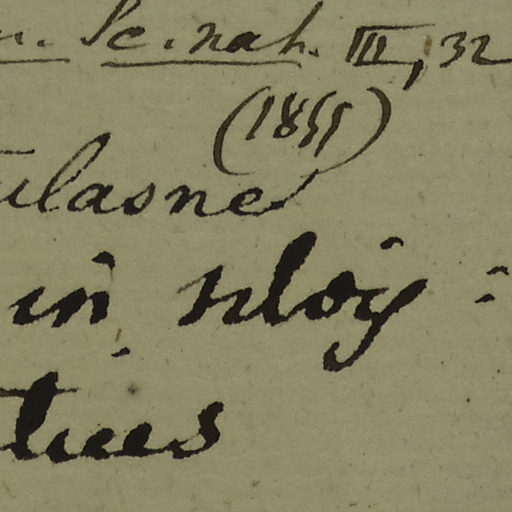 n. Sc. nat. III, 32
(1855)
ulasne
in
tues